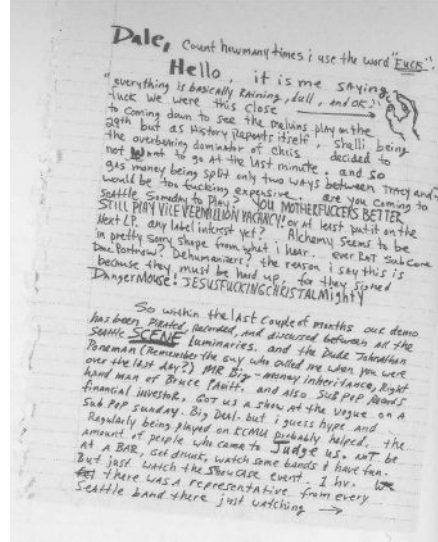 Dale, Count how many times i use the word "Fuck".
Hello, it is me saying
"everything is basically Raining, dull, and OK."
fuck we were this close
to coming down to see the melvins play on the
29th but as History Repeats itself, Shelli being
the overbearing dominator of Chris decided to
not want to go at the last minute. and so
gas money being split only two ways between Tracy and
would be too fucking expensive. are you coming to
Seattle Someday to Play? YOU MOTHERFUCKERS BETTER
STILL PLAY VILE VERMILLION VACANCY! or at least put it on the
Next LP. any label interest yet? Alchemy Seems to be
in pretty sorry shape from what i hear. ever
Dac Portnow? Dehumanizers? the reason i say this is
because they must be hard up, for they signed
DangerMouse! JESUSFUCKINGCHRISTALMighty
So within the last Couple of months our demo
has been Pirated, Recorded, and discussed between all the
Seattle SCENE luminaries. and the Dude Johnathan
Poneman (Remember the guy who called me when you were
over the last day?) MR Big-money inheritance, Right
hand man of Bruce Pavitt. and also Sub Pop Records
financial investor, GOT US a show At the Vogue on A
Sub Pop Sunday. Big Deal. but i guess hype and
Regularly being played on KCMU probably helped. the
amount of people who came to Judge us. NOT BE
AT A BAR, Get drunk, watch some bands & have fun.
But just watch the Showcase event. 1 hr. We
there was a representative from every
Seattle band there just watching